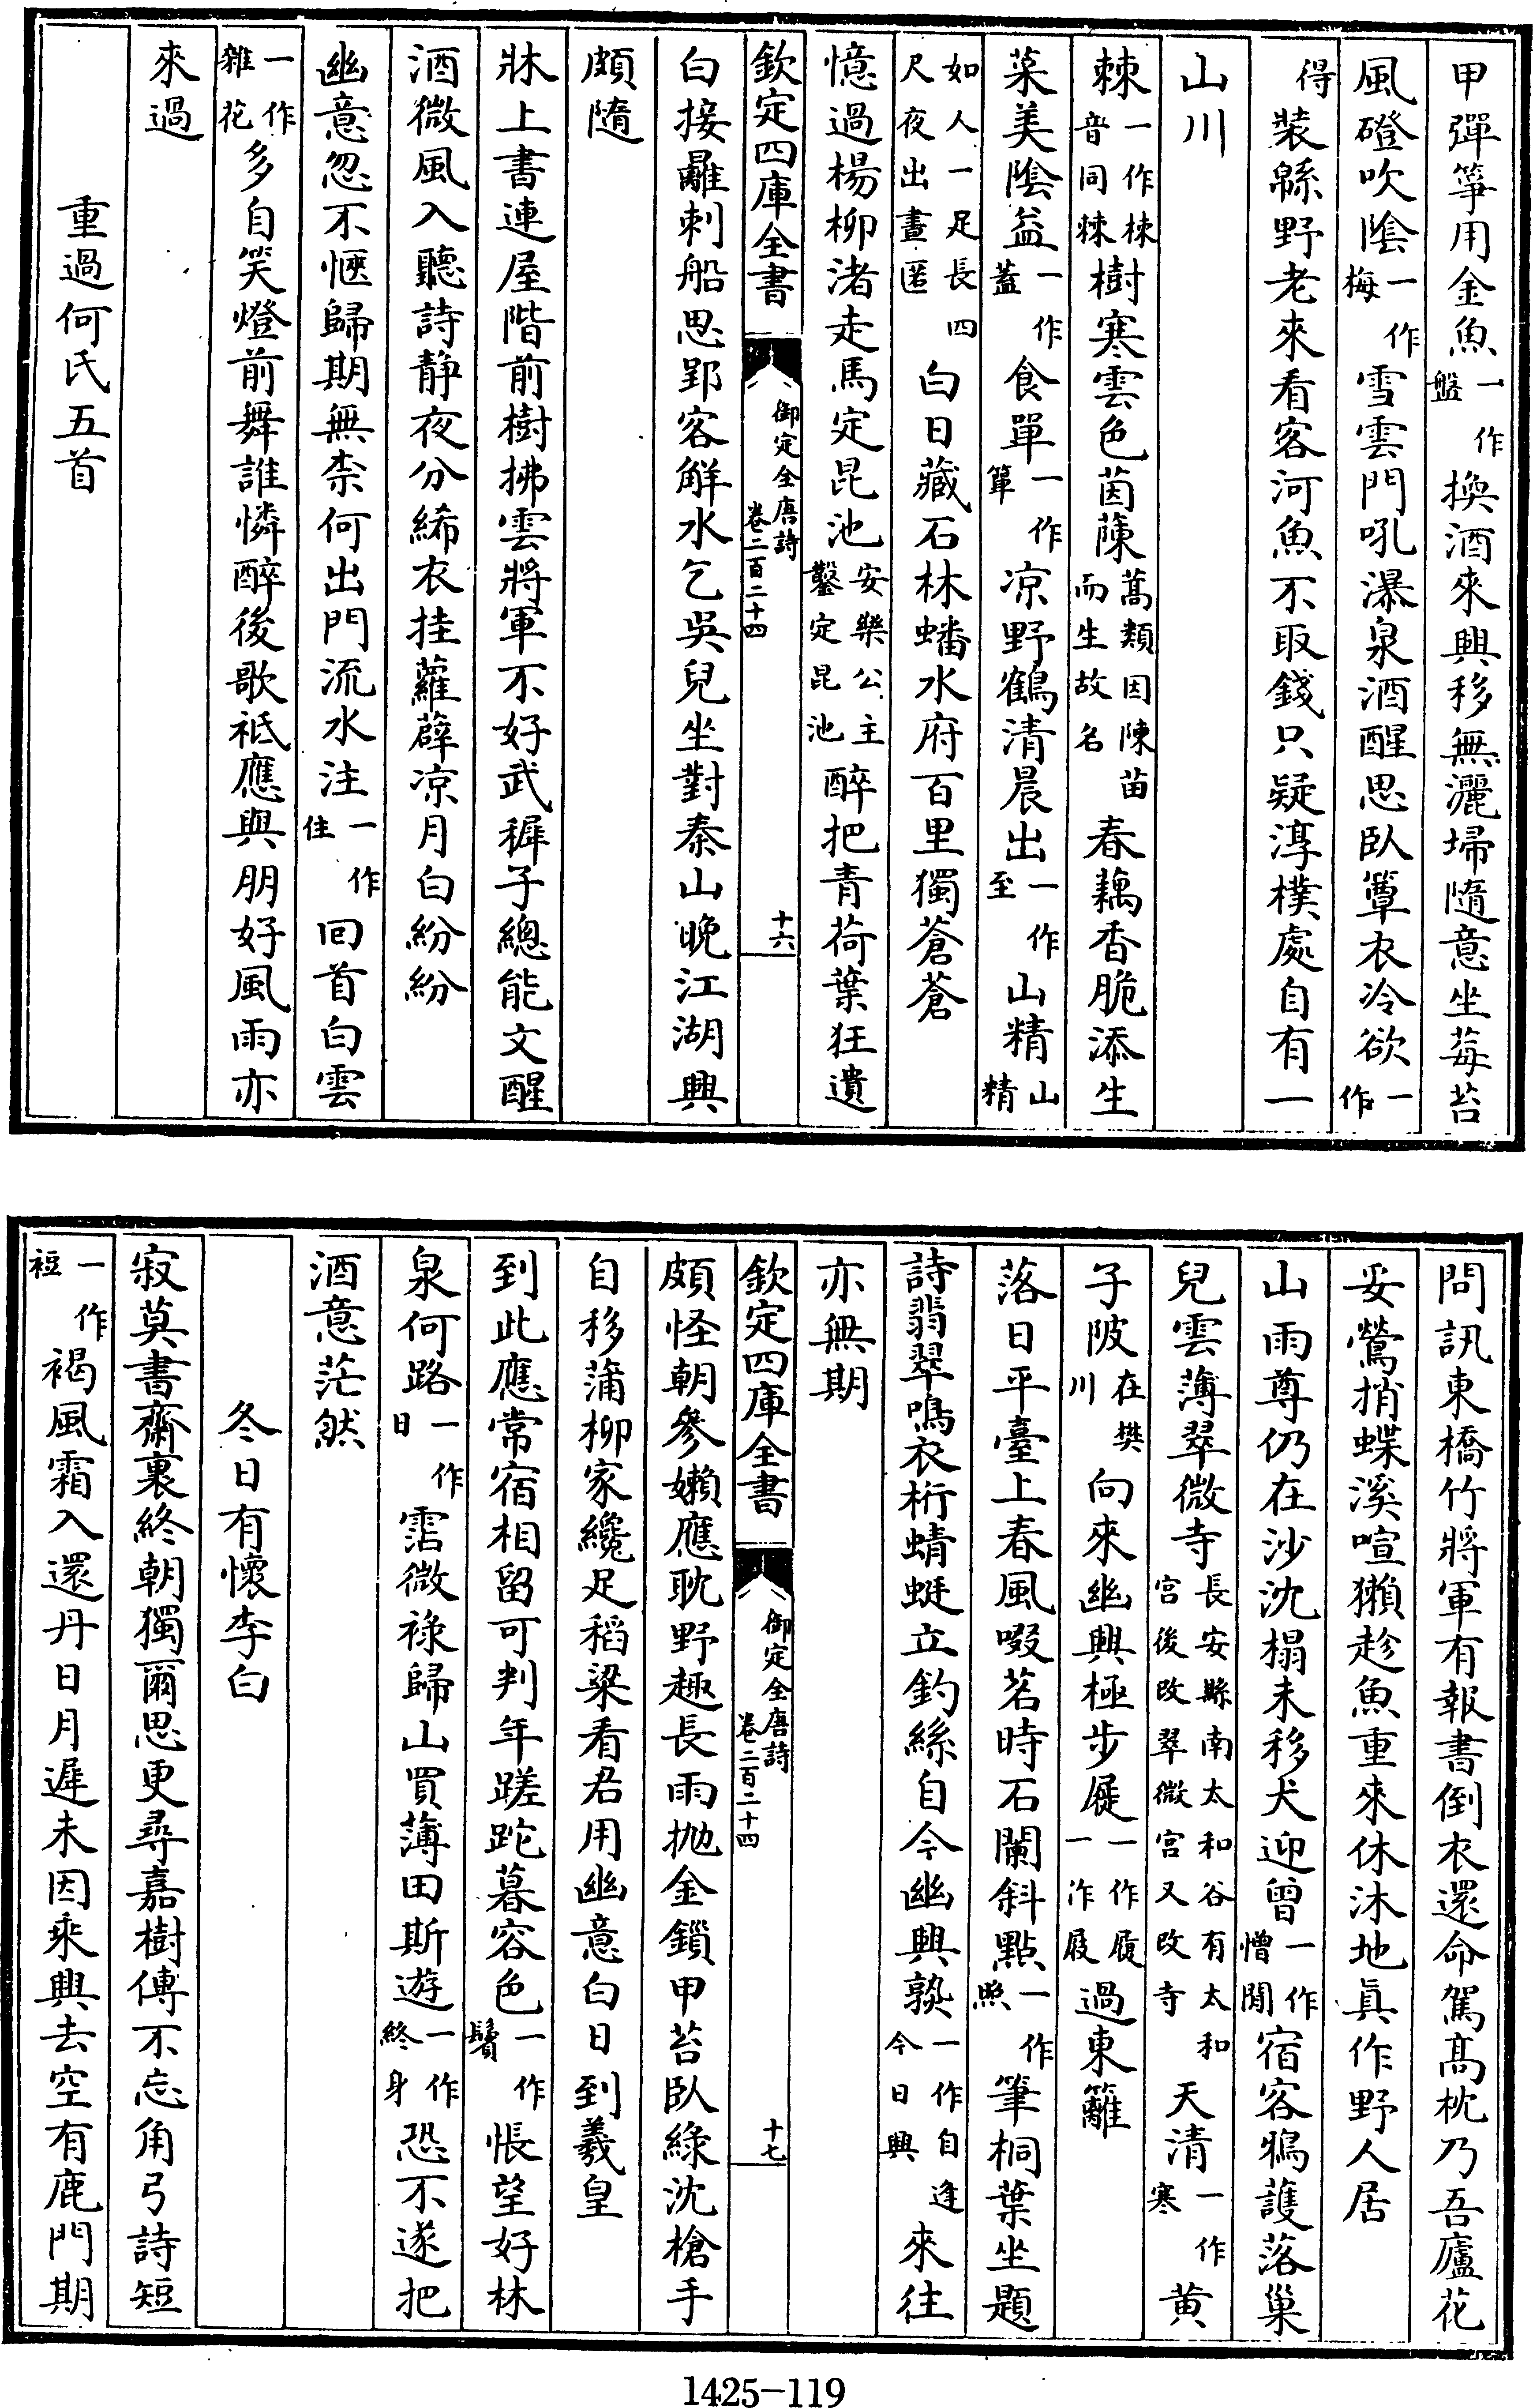 甲彈箏用金魚一作盤換酒來興移無灑埽隨意坐莓苔
風磴吹陰一作梅雪雲門吼瀑泉酒醒思臥簟衣冷欲一作
得裝緜野老來看客河魚不取錢只疑淳樸處自有一
山川
棘一作梀音同棘樹寒雲色茵蔯蒿類因陳苗而生故名春藕香脆添生
菜美陰益一作蓋食單一作簞凉野鶴清晨出一作至山精山精
如人一足長四尺夜出晝匿白日藏石林蟠水府百里獨蒼蒼
憶過楊柳渚走馬定昆池安樂公主鑿定昆池醉把青荷葉狂遺
欽定四庫全書 御定全唐詩卷二百二十四 十六
白接䍦刺船思郢客解水乞吳兒坐對秦山晚江湖興
頗隨
牀上書連屋階前樹拂雲將軍不好武穉子總能文醒
酒微風入聽詩靜夜分絺衣挂蘿薜凉月白紛紛
幽意忽不愜歸期無柰何出門流水注一作住回首白雲
一作雜花多自笑燈前舞誰憐醉後歌祗應與朋好風雨亦
來過
重過何氏五首
問訊東橋竹將軍有報書倒衣還命駕高枕乃吾廬花
妥鶯捎蝶溪喧獺趁魚重來休沐地眞作野人居
山雨尊仍在沙沈榻未移犬迎曾一作憎閒宿客鴉護落巢
兒雲薄翠微寺長安縣南太和谷有太和宫後改翠微宫又改寺天清一作寒黄
子陂在樊川向來幽興極步屣一作履一作屐過東籬
落日平臺上春風啜茗時石闌斜點一作照筆桐葉坐題
詩翡翠鳴衣桁蜻蜓立釣絲自今幽興孰一作自逢今日興來往
亦無期
欽定四庫全書 御定全唐詩卷二百二十四 十七
頗怪朝參嬾應耽野趣長雨抛金鎖甲苔臥綠沈槍手
自移蒲柳家纔足稻粱看君用幽意白日到羲皇
到此應常宿相留可判年蹉跎暮容色一作鬢悵望好林
泉何路一作日霑微祿歸山買薄田斯遊一作終身恐不遂把
酒意茫然
冬日有懷李白
寂莫書齋裏終朝獨爾思更尋嘉樹傳不忘角弓詩短
一作裋褐風霜入還丹日月遲未因乘興去空有鹿門期
1425-119